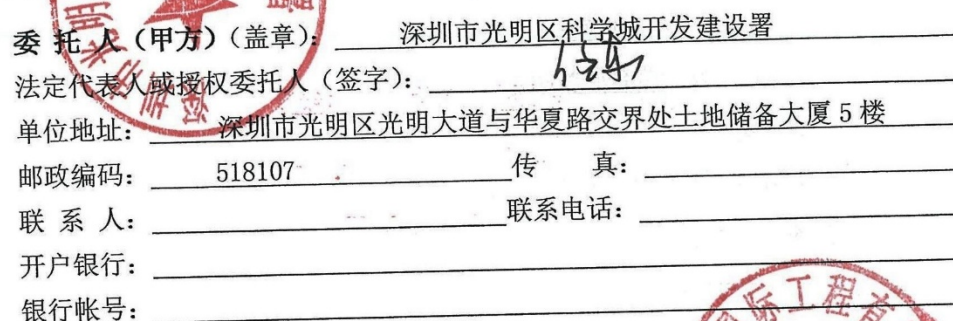 委 托 人（甲方）（盖章）： 深圳市光明区科学城开发建设署
法定代表人或授权委托人（签字）：
单位地址： 深圳市光明区光明大道与华夏路交界处土地储备大厦 5 楼
邮政编码： 518107 传 真：
联 系 人： 联系电话：
开户银行：
银行帐号：
际工程有